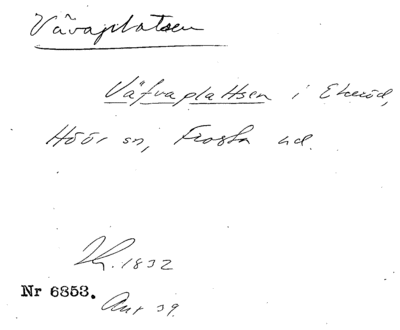 Vävaplatsen
Väfvaplattsen i Ekeröd,
Höör sn, Frosta hd.
1832
Nr 6853.
39.